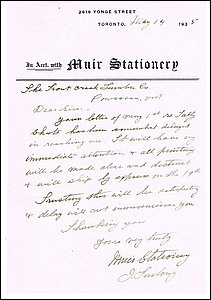 2619 YONGE STREET
TORONTO, May 14 1935
In Acct. with Muir Stationery
The Trout Creek Lumber Co.
Powassan, Ont
Dear Sirs:-
Your letter of May 1st re Tally
Sheets has been somewhat delayed
in reaching me. It will have my
immediate attention & all printing
will be made clear and distinct
& will ship by express on the 19th
Trusting this will be satisfactory
& delay will not inconvenience you
Thanking you
Yours very truly
Muir Stationery